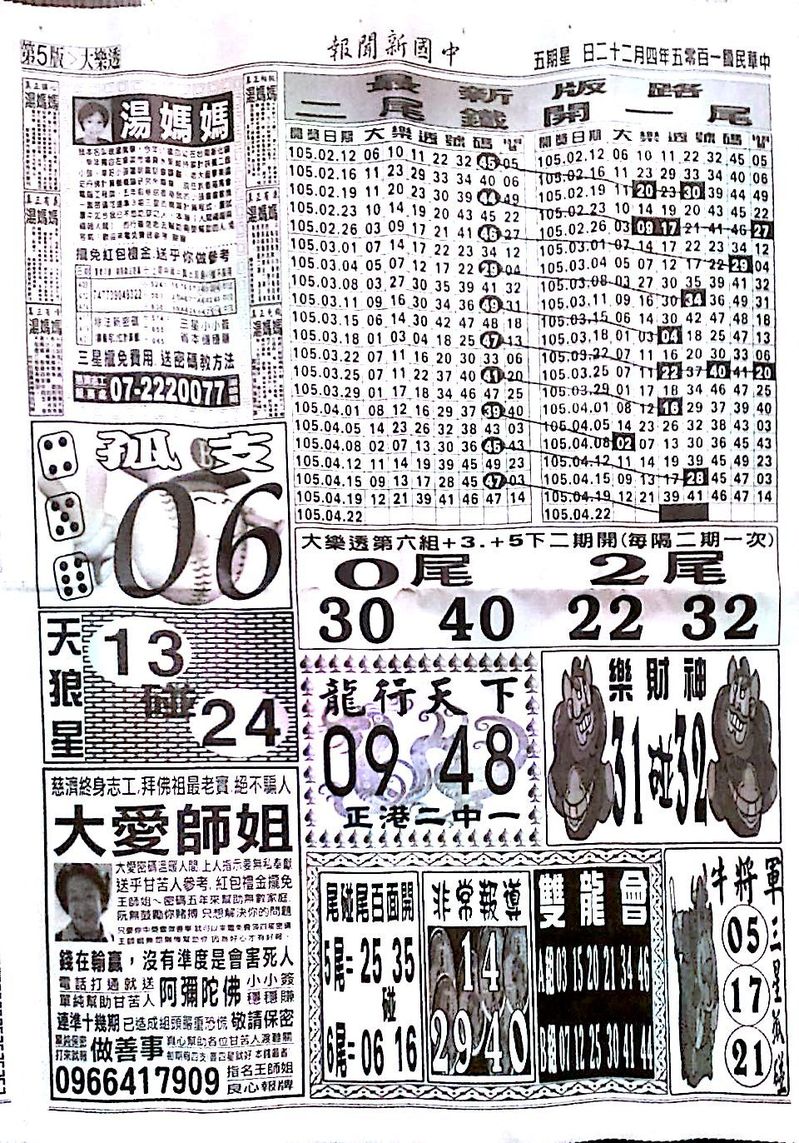 第5版 大樂透
報聞新國中
中華民國一百零五年四月二十二日 星期五
湯媽媽
攏免紅包禮金.送乎你做參考
747709049322
三星攏免費用 送密碼教方法
07-2220077
湯媽媽
湯媽媽
湯媽媽
湯媽媽
湯媽媽
湯媽媽
最新版路
二尾鐵開一尾
開獎日期 大樂透號碼
105.02.12 06 10 11 22 32 45 05
105.02.16 11 23 29 33 34 40 06
105.02.19 11 20 23 30 39 44 49
105.02.23 10 14 19 20 43 45 22
105.02.26 03 09 17 21 41 46 27
105.03.01 07 14 17 22 23 34 12
105.03.04 05 07 12 17 22 29 04
105.03.08 03 27 30 35 39 41 32
105.03.11 09 16 30 34 36 49 31
105.03.15 06 14 30 42 47 48 18
105.03.18 01 03 04 18 25 47 13
105.03.22 07 11 16 20 30 33 06
105.03.25 07 11 22 37 40 41 20
105.03.29 01 17 18 34 46 47 25
105.04.01 08 12 16 29 37 39 40
105.04.05 14 23 26 32 38 43 03
105.04.08 02 07 13 30 36 45 43
105.04.12 11 14 19 39 45 49 23
105.04.15 09 13 17 28 45 47 03
105.04.19 12 21 39 41 46 47 14
105.04.22
開獎日期 大樂透號碼
105.02.12 06 10 11 22 32 45 05
105.02.16 11 23 29 33 34 40 06
105.02.19 11 20 23 30 39 44 49
105.02.23 10 14 19 20 43 45 22
105.02.26 03 09 17 21 41 46 27
105.03.01 07 14 17 22 23 34 12
105.03.04 05 07 12 17 22 29 04
105.03.08 03 27 30 35 39 41 32
105.03.11 09 16 30 34 36 49 31
105.03.15 06 14 30 42 47 48 18
105.03.18 01 03 04 18 25 47 13
105.03.22 07 11 16 20 30 33 06
105.03.25 07 11 22 37 40 41 20
105.03.29 01 17 18 34 46 47 25
105.04.01 08 12 16 29 37 39 40
105.04.05 14 23 26 32 38 43 03
105.04.08 02 07 13 30 36 45 43
105.04.12 11 14 19 39 45 49 23
105.04.15 09 13 17 28 45 47 03
105.04.19 12 21 39 41 46 47 14
105.04.22
孤支
06
大樂透第六組+3.+5下二期開(每隔二期一次)
0尾 2尾
30 40 22 32
天狼星
13
碰
24
龍行天下
09 48
正港二中一
樂財神
31碰32
慈濟終身志工.拜佛祖最老實.絕不騙人
大愛師姐
大愛密碼溫暖人間 上人指示要無私奉獻
送乎甘苦人參考.紅包禮金攏免
王師姐ㄟ密碼五年來幫助無數家庭.
阮無鼓勵你賭博 只想解決你的問題
錢在輸贏，沒有準度是會害死人
電話打通就送
單純幫助甘苦人
阿彌陀佛
小小簽
穩穩賺
連準十幾期 已造成組頭嚴重恐慌 敬請保密
做善事
真心幫助各位甘苦人渡難關
0966417909
指名王師姐
良心報牌
尾碰尾百面開
5尾=25 35
碰
6尾=06 16
非常報導
14
29 40
雙龍會
A組 03 15 20 21 34 46
B組 07 12 25 30 41 44
牛將軍
三星孤碰
05
17
21